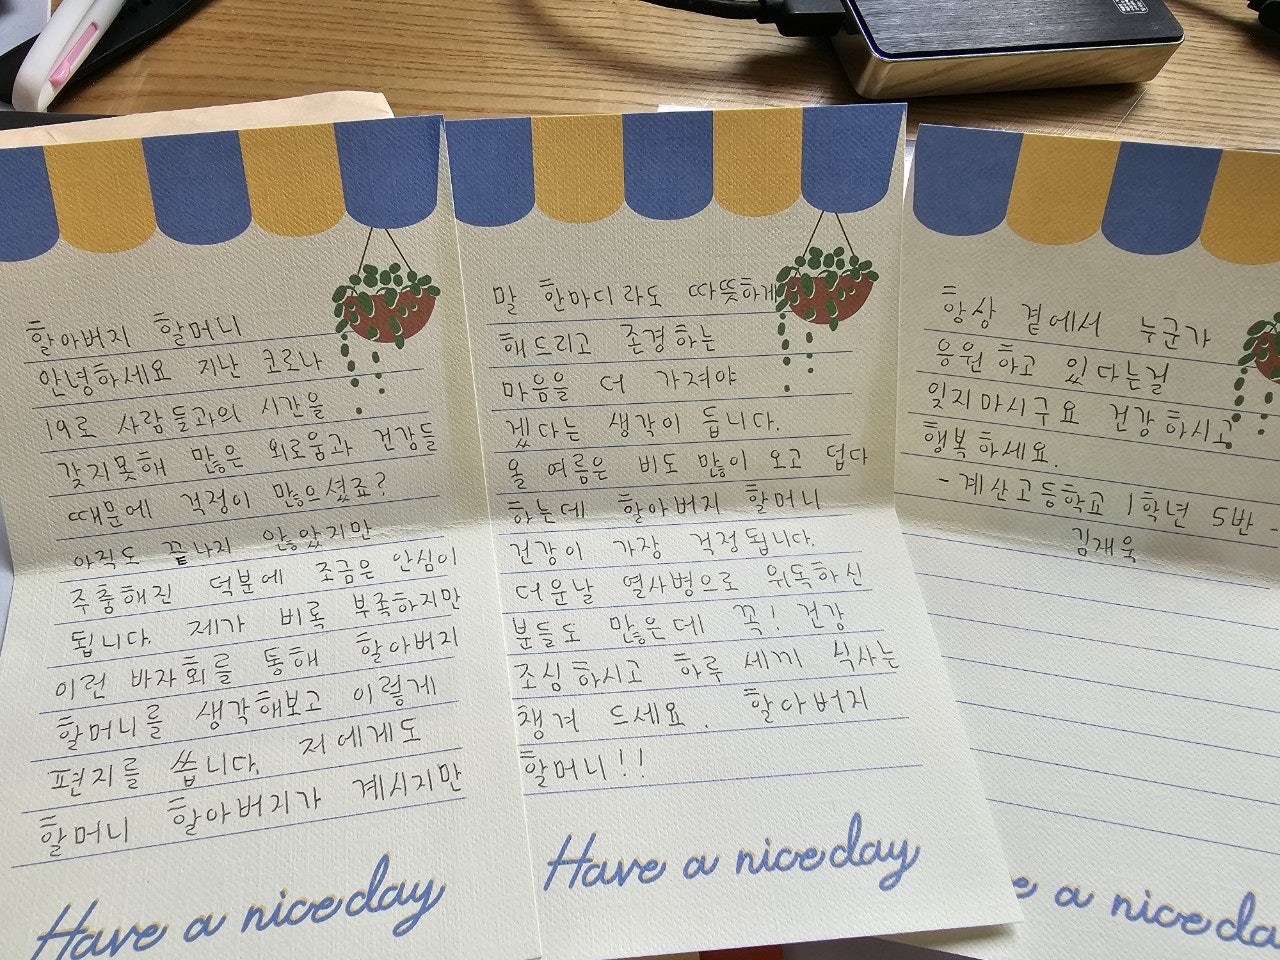 할아버지 할머니
안녕하세요 지난 코로나
19로 사람들과의 시간을
갖지못해 많은 외로움과 건강들
때문에 걱정이 많으셨죠?
아직도 끝나지 않았지만
주춤해진 덕분에 조금은 안심이
됩니다. 제가 비록 부족하지만
이런 바자회를 통해 할아버지
할머니를 생각해보고 이렇게
편지를 씁니다. 저에게도
할머니 할아버지가 계시지만
Have a nice day
말 한마디라도 따뜻하게
해드리고 존경하는
마음을 더 가져야
겠다는 생각이 듭니다.
올 여름은 비도 많이 오고 덥다
하는데 할아버지 할머니
건강이 가장 걱정됩니다.
더운날 열사병으로 위독하신
분들도 많은데 꼭! 건강
조심하시고 하루 세끼 식사는
챙겨 드세요. 할아버지
할머니!!
Have a nice day
항상 곁에서 누군가
응원 하고 있다는걸
잊지마시구요 건강하시고
행복하세요.
- 계산고등학교 1학년 5반 -
김재욱
e a nice da